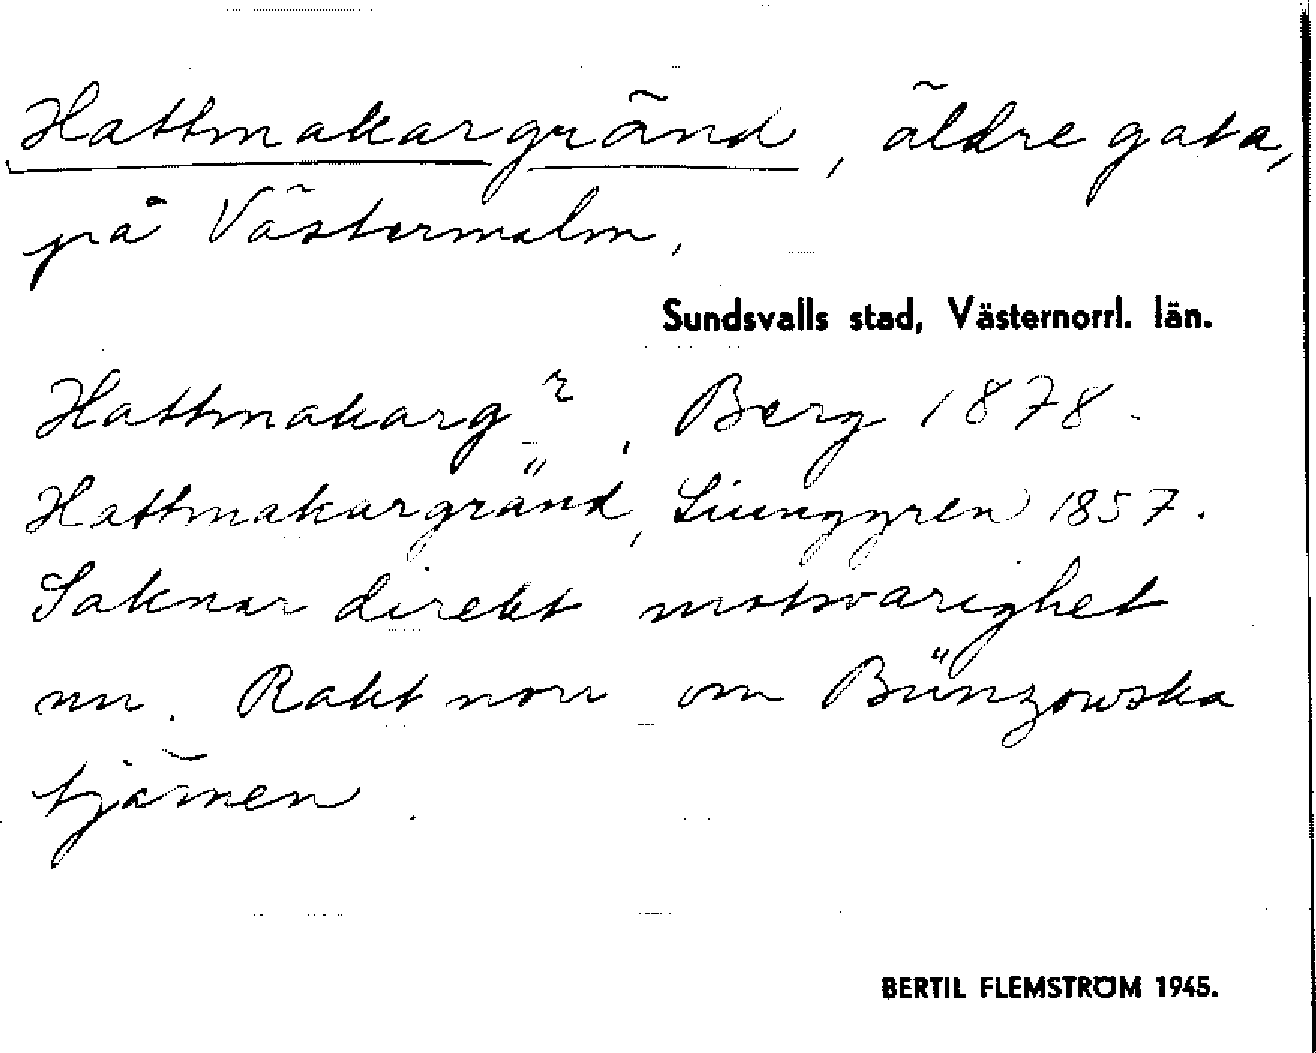 Hattmakargränd, äldre gata,
på Västermalm,
Sundsvalls stad, Västernorrl. län.
Hattmakargr, Berg 1878.
Hattmakargränd, Liunggren 1857.
Saknar direkt motsvarighet
nu. Rakt norr om Bünzowska
tjärnen.
BERTIL FLEMSTRÖM 1945.